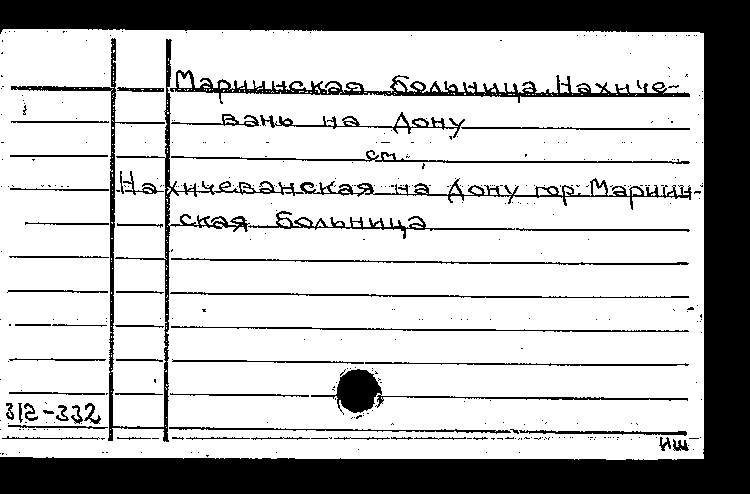 Мариинская больница. Нахиче-
вань на Дону
см.
Нахичеванская на Дону гор. Мариин-
ская больница.
312-332
нш